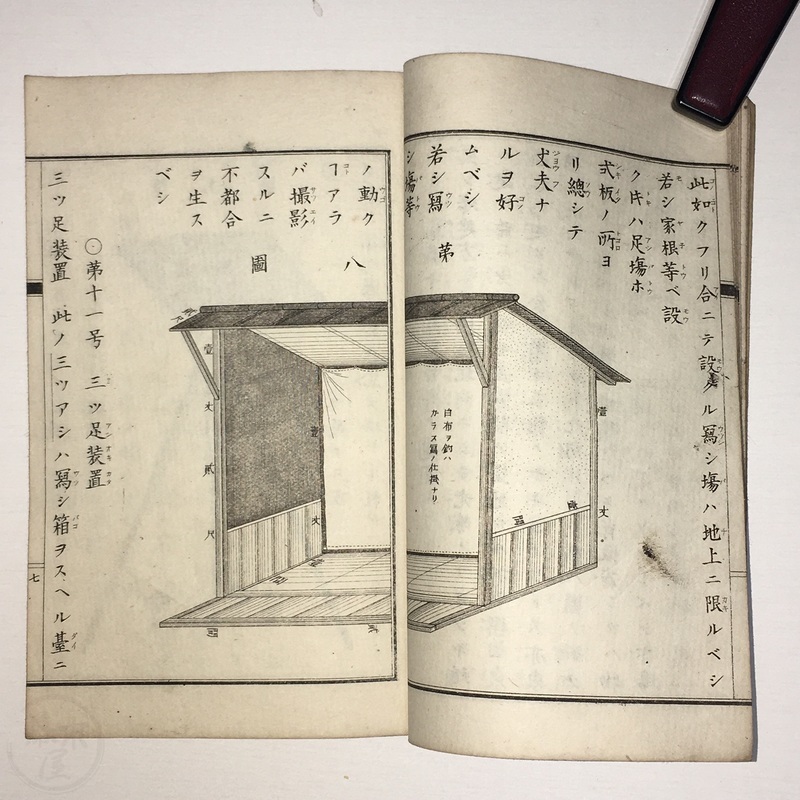 此如クフリ合ニテ設タル寫シ塲ハ地上ニ限ルベシ
若シ家根等ベ設
ク片ハ足塲ホ
弐板ノ所ヨ
リ總シテ
丈夫ナ
ルヲ好
ムベシ
若シ寫
シ塲等
第
白布ヲ釣ハ
カラス寫ノ仕掛ナリ
壹
丈
八
圖
ノ動ク
ヿアラ
バ撮影
スルニ
不都合
ヲ生ス
ベシ
壹
丈
貳
尺
壹
丈
〇第十一号 三ツ足装置
三ツ足装置 此ノ三ツアシハ寫シ箱ヲスヘル臺ニ
七